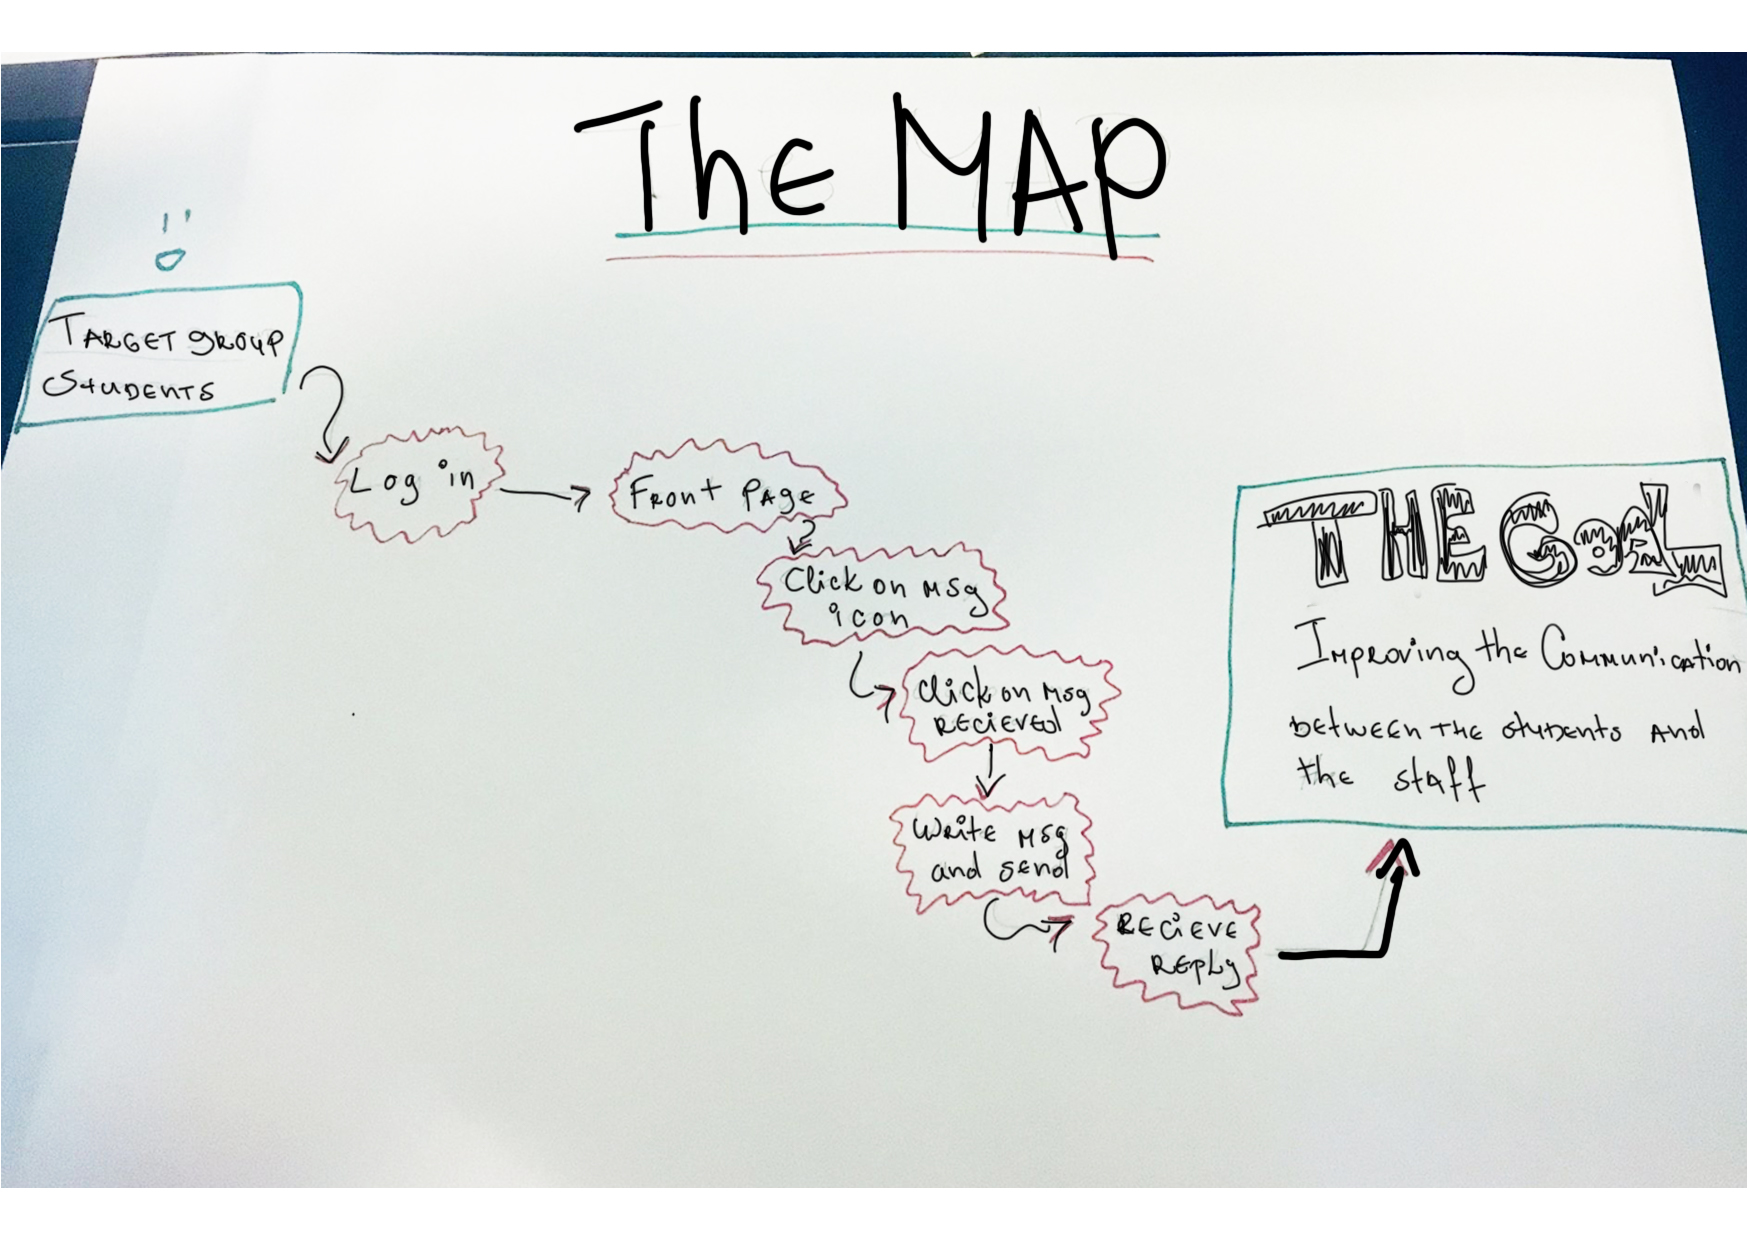 The MAP
TARGET gROUP
STUDENTS
Log in
FRONT PAgE
Click on MSg
icon
Click on MSg
RECIEVED
WRITE MSg
and SEND
RECIEVE
REPLy
THE GoAL
IMPROVing the COMMUNiCATION
bETWEEN THE STUDENTS AND
the staff